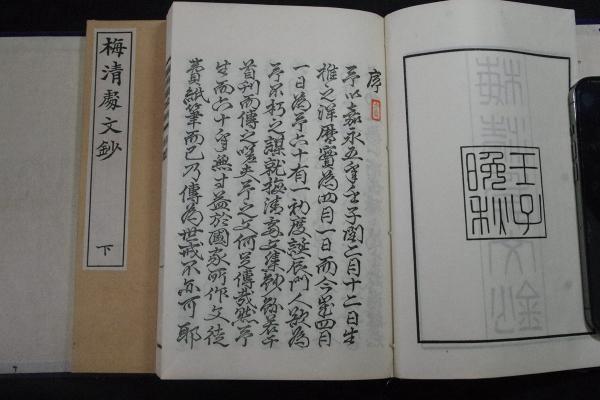 壬子
晩秋
序
予以嘉永五年壬子閏二月十二日生
推之洋暦實為四月一日而今歳四月
一日為予六十有一初度誕辰門人欲為
予不朽之謀就梅清處文集鈔若干
首刊而傳之嗟夫予之文何足傳哉然予
生而六十年無寸益於國家所作文徒
費紙筆而已乃傳為世戒不亦可耶
梅清處文鈔
下